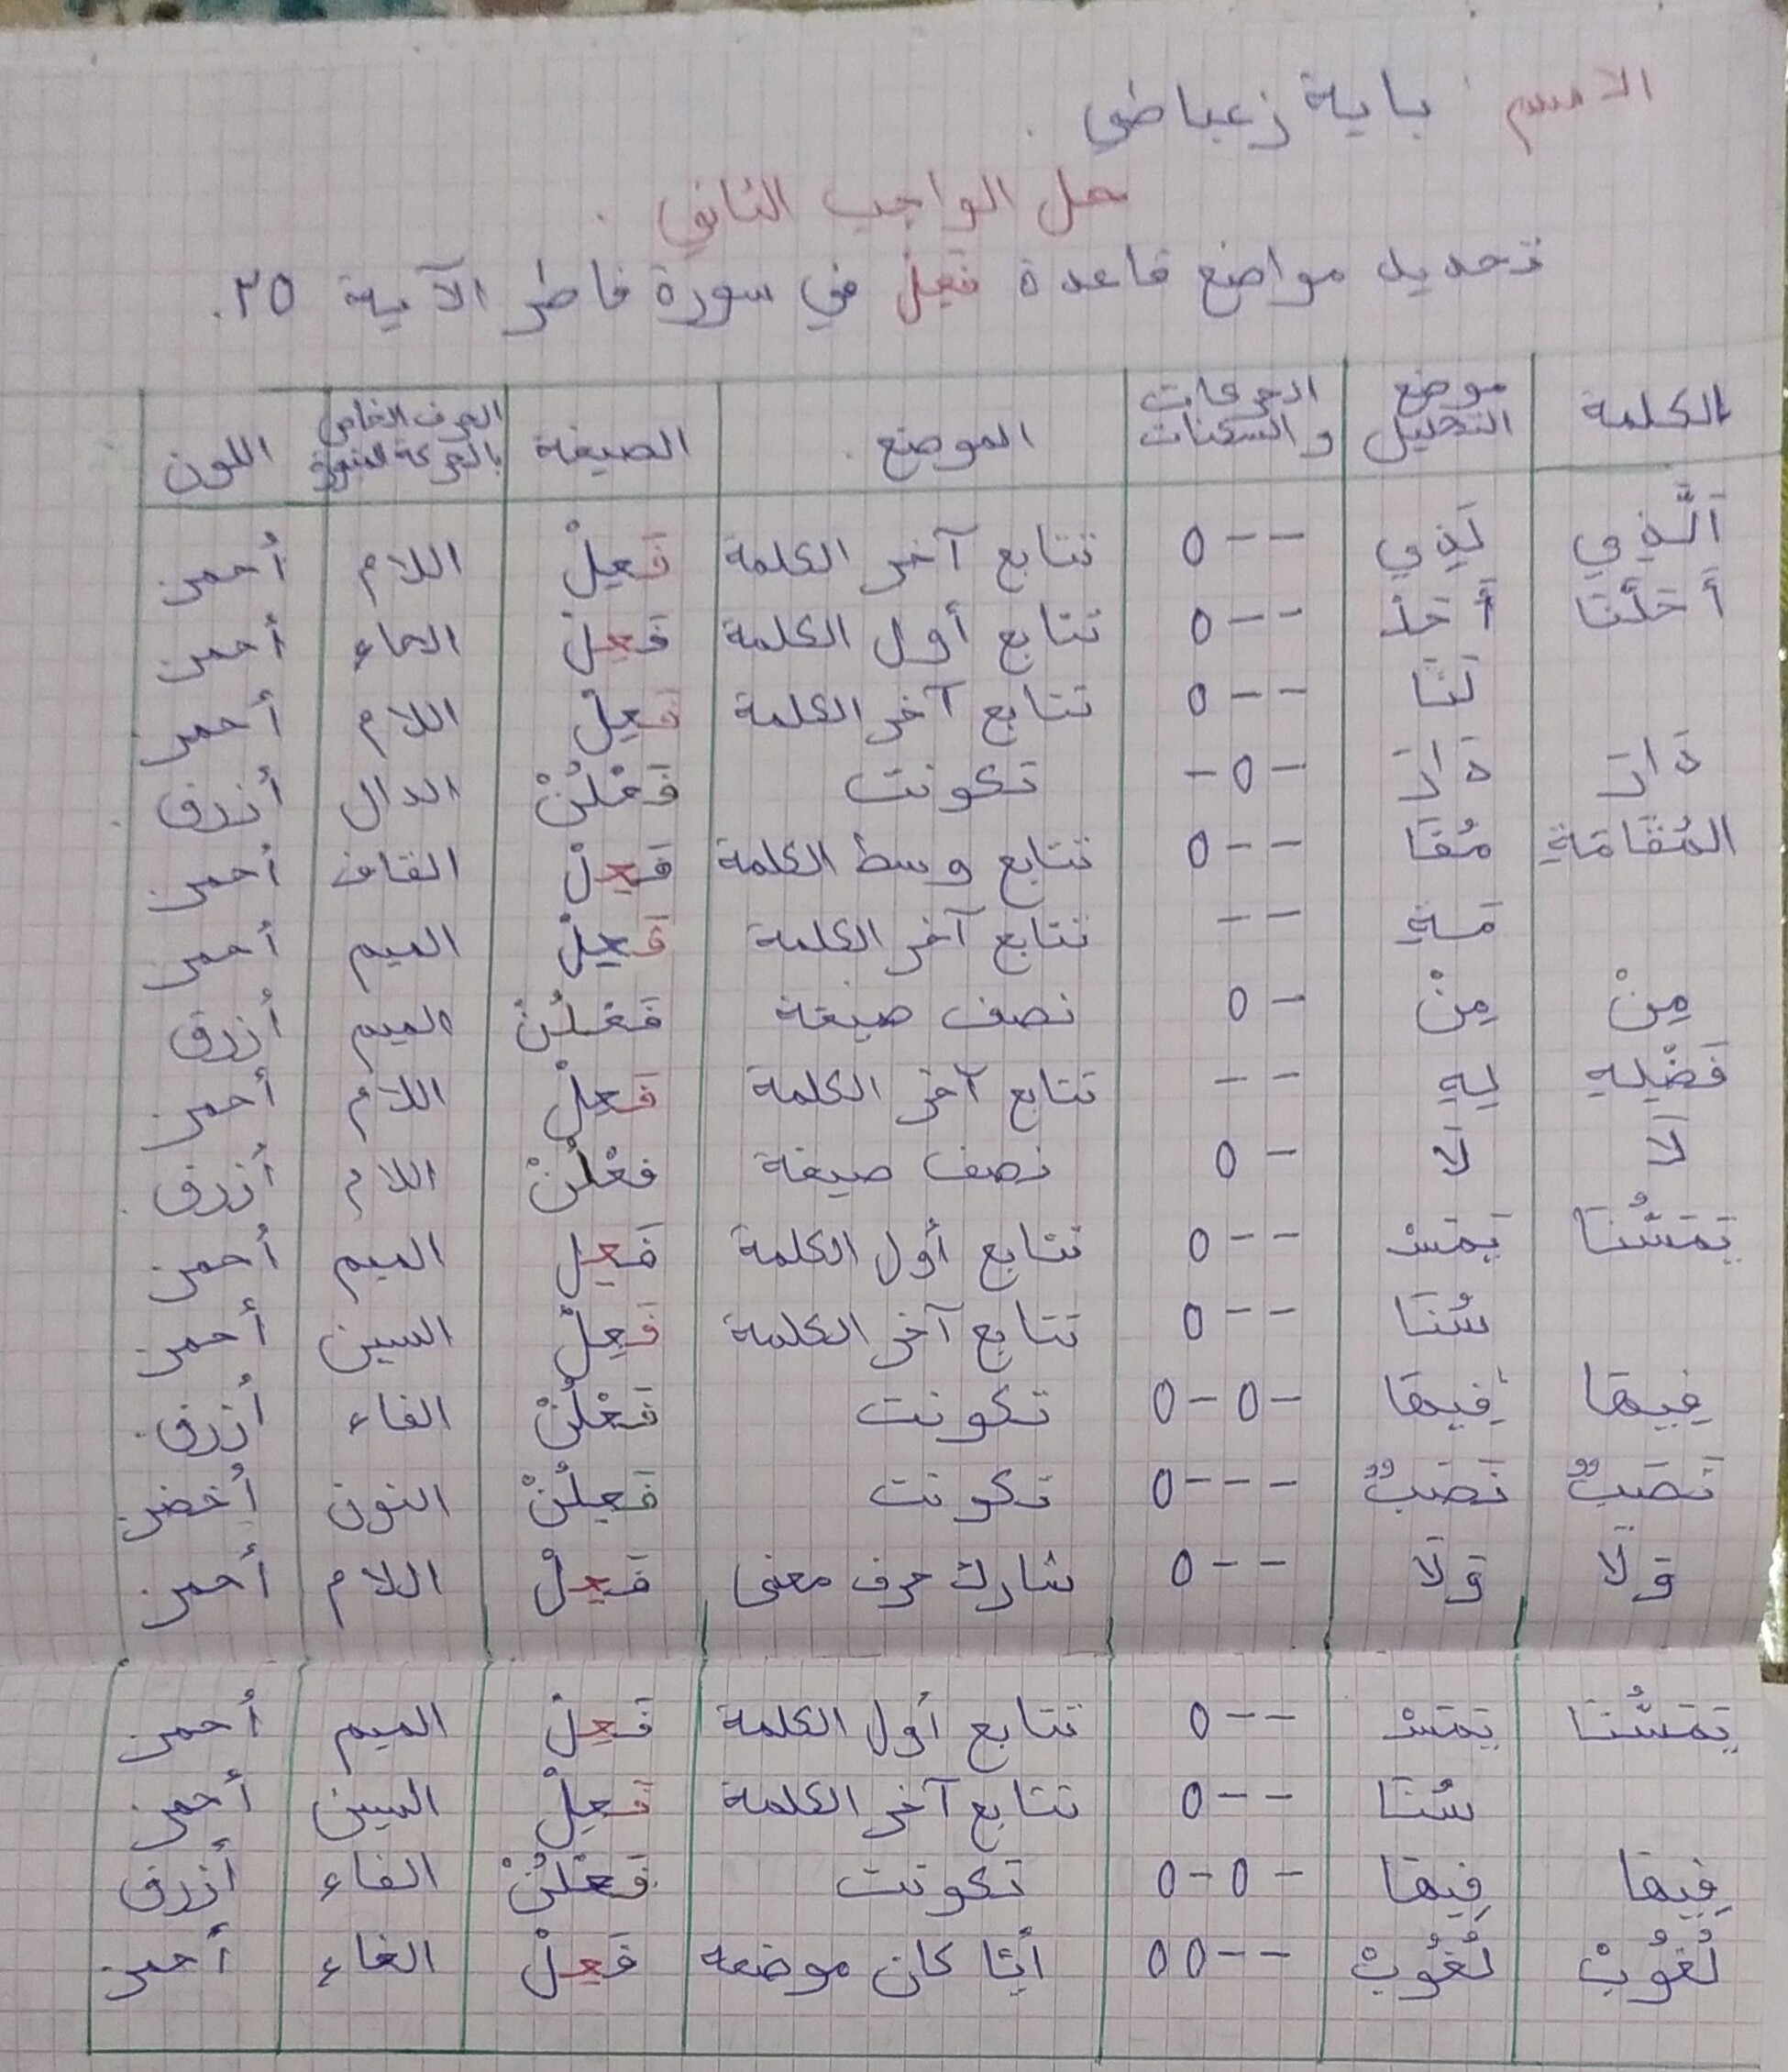 الاسم : باية زعباطي .
حل الواجب الثاني .
تحديد مواضع قاعدة فَعِلْ في سورة فاطر الآية ٣٥.
الكلمة | موضع التحليل | الحركات والسكنات | الموضع | الصيغة | الحرف الخاص بالحركة | اللون
اَلَّذِي | لَذِي | --o | تتابع آخر الكلمة | فَعِلْ | اللام | أحمر
أَحَلَّنَا | أَحَلْ | --o | تتابع أول الكلمة | فَعِلْ | الحاء | أحمر
لَنَا | --o | تتابع آخر الكلمة | فَعِلْ | اللام | أحمر
دَارَ | دَارَ | -o- | تكونت | فَعْلُنْ | الدال | أزرق
المُقَامَةِ | مُقَا | --o | تتابع وسط الكلمة | فَعِلْ | القاف | أحمر
مَةِ | -- | تتابع آخر الكلمة | فَعِلْ | الميم | أحمر
مِنْ | مِنْ | -o | نصف صيغة | فَعْلُنْ | الميم | أزرق
فَضْلِهِ | لِهِ | -- | تتابع آخر الكلمة | فَعِلْ | اللام | أحمر
لَا | لَا | -o | نصف صيغة | فعْلُنْ | اللام | أزرق
يَمَسُّنَا | يَمَسْ | --o | تتابع أول الكلمة | فَعِل | الميم | أحمر
سُنَا | --o | تتابع آخر الكلمة | فَعِلْ | السين | أحمر
فِيهَا | فِيهَا | -o-o | تكونت | فَعْلُنْ | الفاء | أزرق
نَصَبٌ | نَصَبٌ | ---o | تكونت | فَعِلُنْ | النون | أخضر
وَلَا | وَلَا | --o | شارك حرف معنى | فَعِلْ | اللام | أحمر
يَمَسُّنَا | يَمَسْ | --o | تتابع أول الكلمة | فَعِلْ | الميم | أحمر
سُنَا | --o | تتابع آخر الكلمة | فَعِلْ | السين | أحمر
فِيهَا | فِيهَا | -o-o | تكونت | فَعْلُنْ | الفاء | أزرق
لُغُوبْ | لُغُوبْ | --oo | أيّا كان موضعه | فَعِلْ | الغاء | أحمر